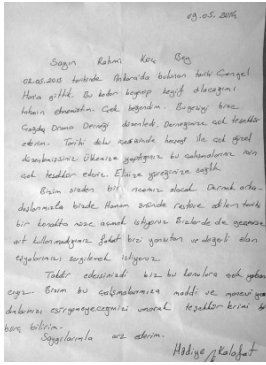 09.05.2014
Sayın Rahmi Koç Bey
02.05.2013 tarihinde Ankara'da bulunan tarihi Çengel
Han'a gittik. Bu kadar beğenip keyif alacağımı
tahmin etmemiştim. Çok beğendim. Bu geziyi bize
Çağdaş Drama Derneği düzenledi. Derneğinize çok teşekkür
ederim. Tarihi doku içerisinde ile çok güzel
Ülkemize yaptığınız bu çalışmalarınız için
çok teşekkür ederiz. Elinize yüreğinize sağlık
Bizim sizden bir ricamız olacak Dernek arka-
daşlarımızla bizde Hanın önünde restore edilen tarihi
bir konakta müze açmak istiyoruz Bizlerde de geçmişe
ait kullanmadığımız fakat bizi yansıtan ve değerli olan
eşyalarımızı sergilemek istiyoruz.
Takdir edersiniz ki biz bu konulara çok yabancı
yız. Bizim bu çalışmalarımıza maddi ve manevi yardım
larınızı esirgemeyeceğinizi umarak teşekkürlerimi bir
borç bilirim.
Saygılarımla arz ederim.
Hadiye Kalafat